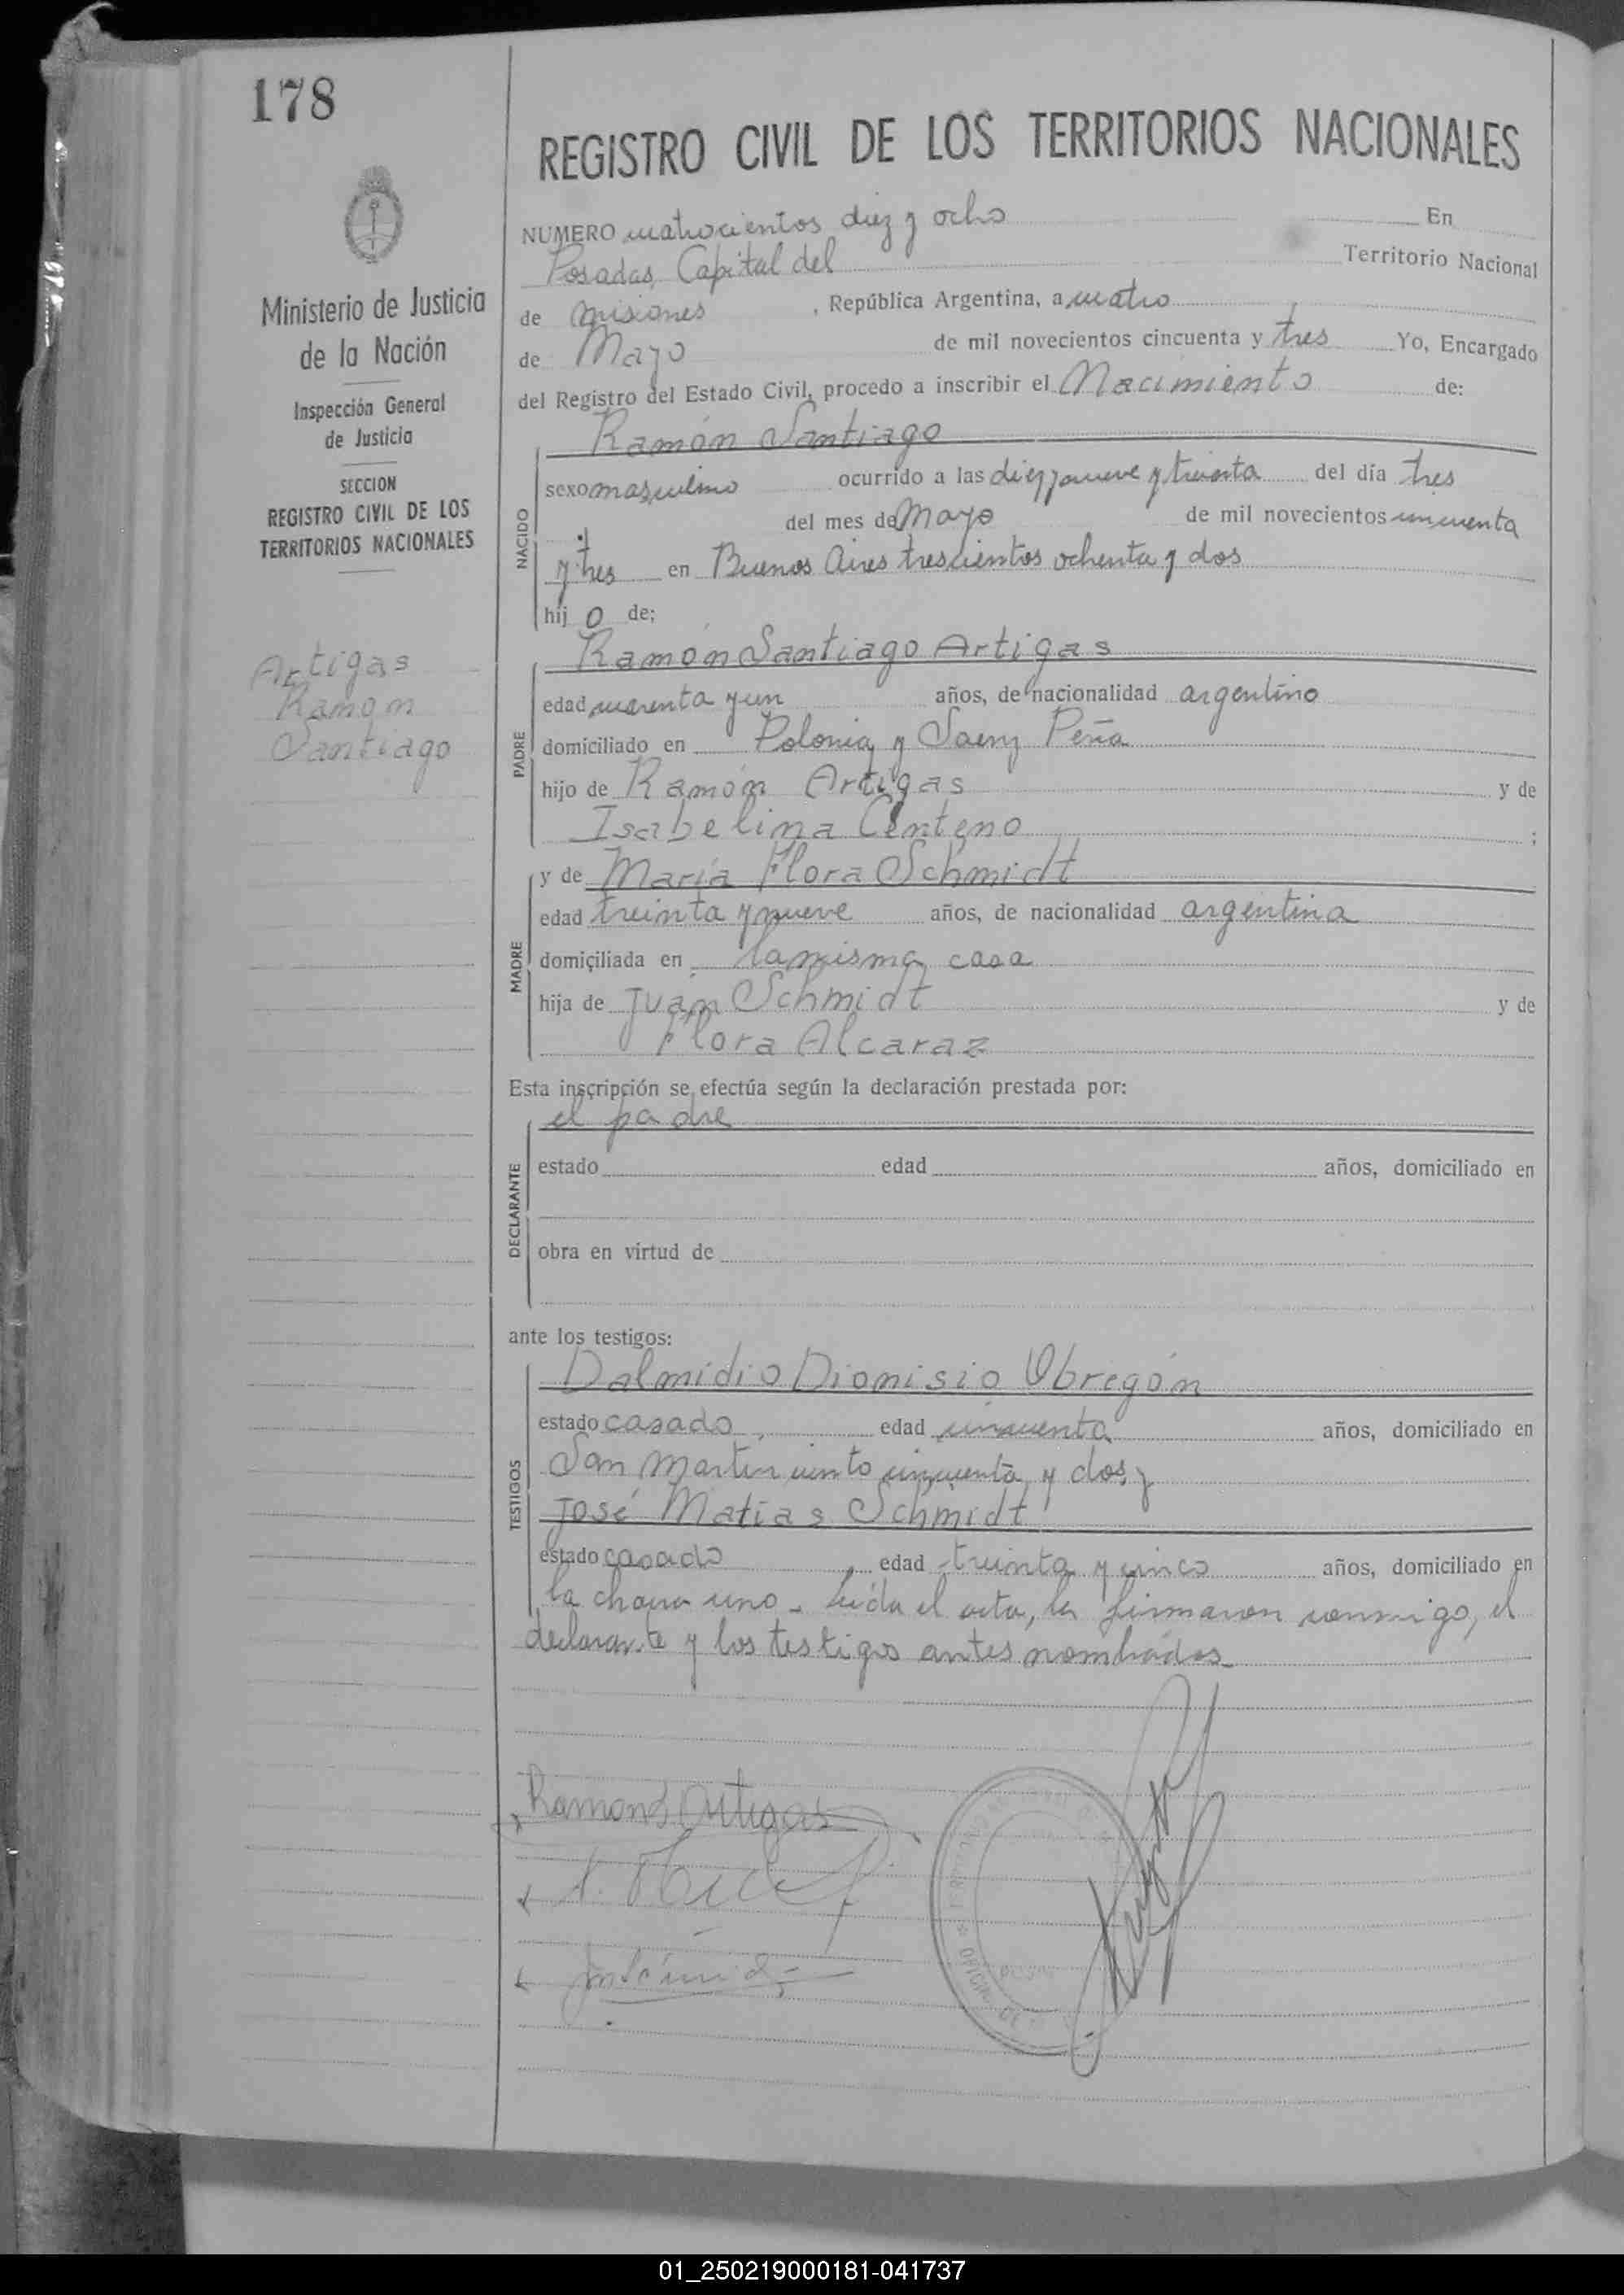 178
REGISTRO CIVIL DE LOS TERRITORIOS NACIONALES
Ministerio de Justicia
de la Nación
Inspección General
de Justicia
SECCION
REGISTRO CIVIL DE LOS
TERRITORIOS NACIONALES
Artigas
Ramon
Santiago
NUMERO cuatrocientos diez y ocho En
Posadas, Capital del Territorio Nacional
de Misiones , República Argentina, a cuatro
de Mayo de mil novecientos cincuenta y tres Yo, Encargado
del Registro del Estado Civil, procedo a inscribir el Nacimiento de:
Ramón Santiago
NACIDO
sexo masculino ocurrido a las diez y nueve y treinta del día tres
del mes de Mayo de mil novecientos cincuenta
y tres en Buenos Aires trescientos ochenta y dos
hij o de;
Ramón Santiago Artigas
PADRE
edad cuarenta y un años, de nacionalidad argentino
domiciliado en Polonia y Saenz Peña
hijo de Ramón Artigas y de
Isabelina Centeno ;
y de María Flora Schmidt
MADRE
edad treinta y nueve años, de nacionalidad argentina
domiciliada en la misma casa
hija de Juan Schmidt y de
Flora Alcaraz
Esta inscripción se efectúa según la declaración prestada por:
el padre
DECLARANTE
estado edad años, domiciliado en
obra en virtud de
ante los testigos:
Dalmidio Dionisio Obregón
TESTIGOS
estado casado, edad cincuenta años, domiciliado en
San Martin ciento cincuenta y dos y
José Matías Schmidt
estado casado edad treinta y cinco años, domiciliado en
la chacra uno - Leída el acta, la firmaron conmigo, el
declarante y los testigos antes nombrados-
Ramon S Artigas
01_250219000181-041737